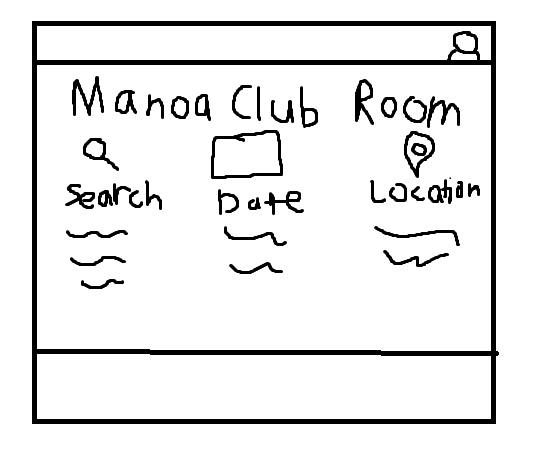 Manoa Club Room
Search Date Location